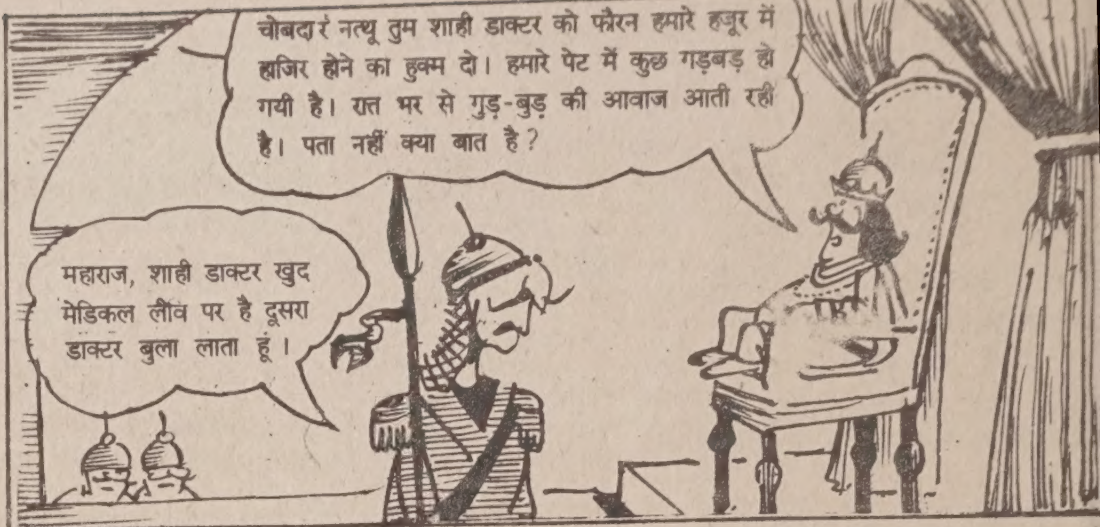 चोबदार नत्थू तुम शाही डाक्टर को फौरन हमारे हजूर में
हाजिर होने का हुक्म दो। हमारे पेट में कुछ गड़बड़ हो
गयी है। रात भर से गुड़-बुड़ की आवाज आती रही
है। पता नहीं क्या बात है?
महाराज, शाही डाक्टर खुद
मेडिकल लीव पर है दूसरा
डाक्टर बुला लाता हूं।